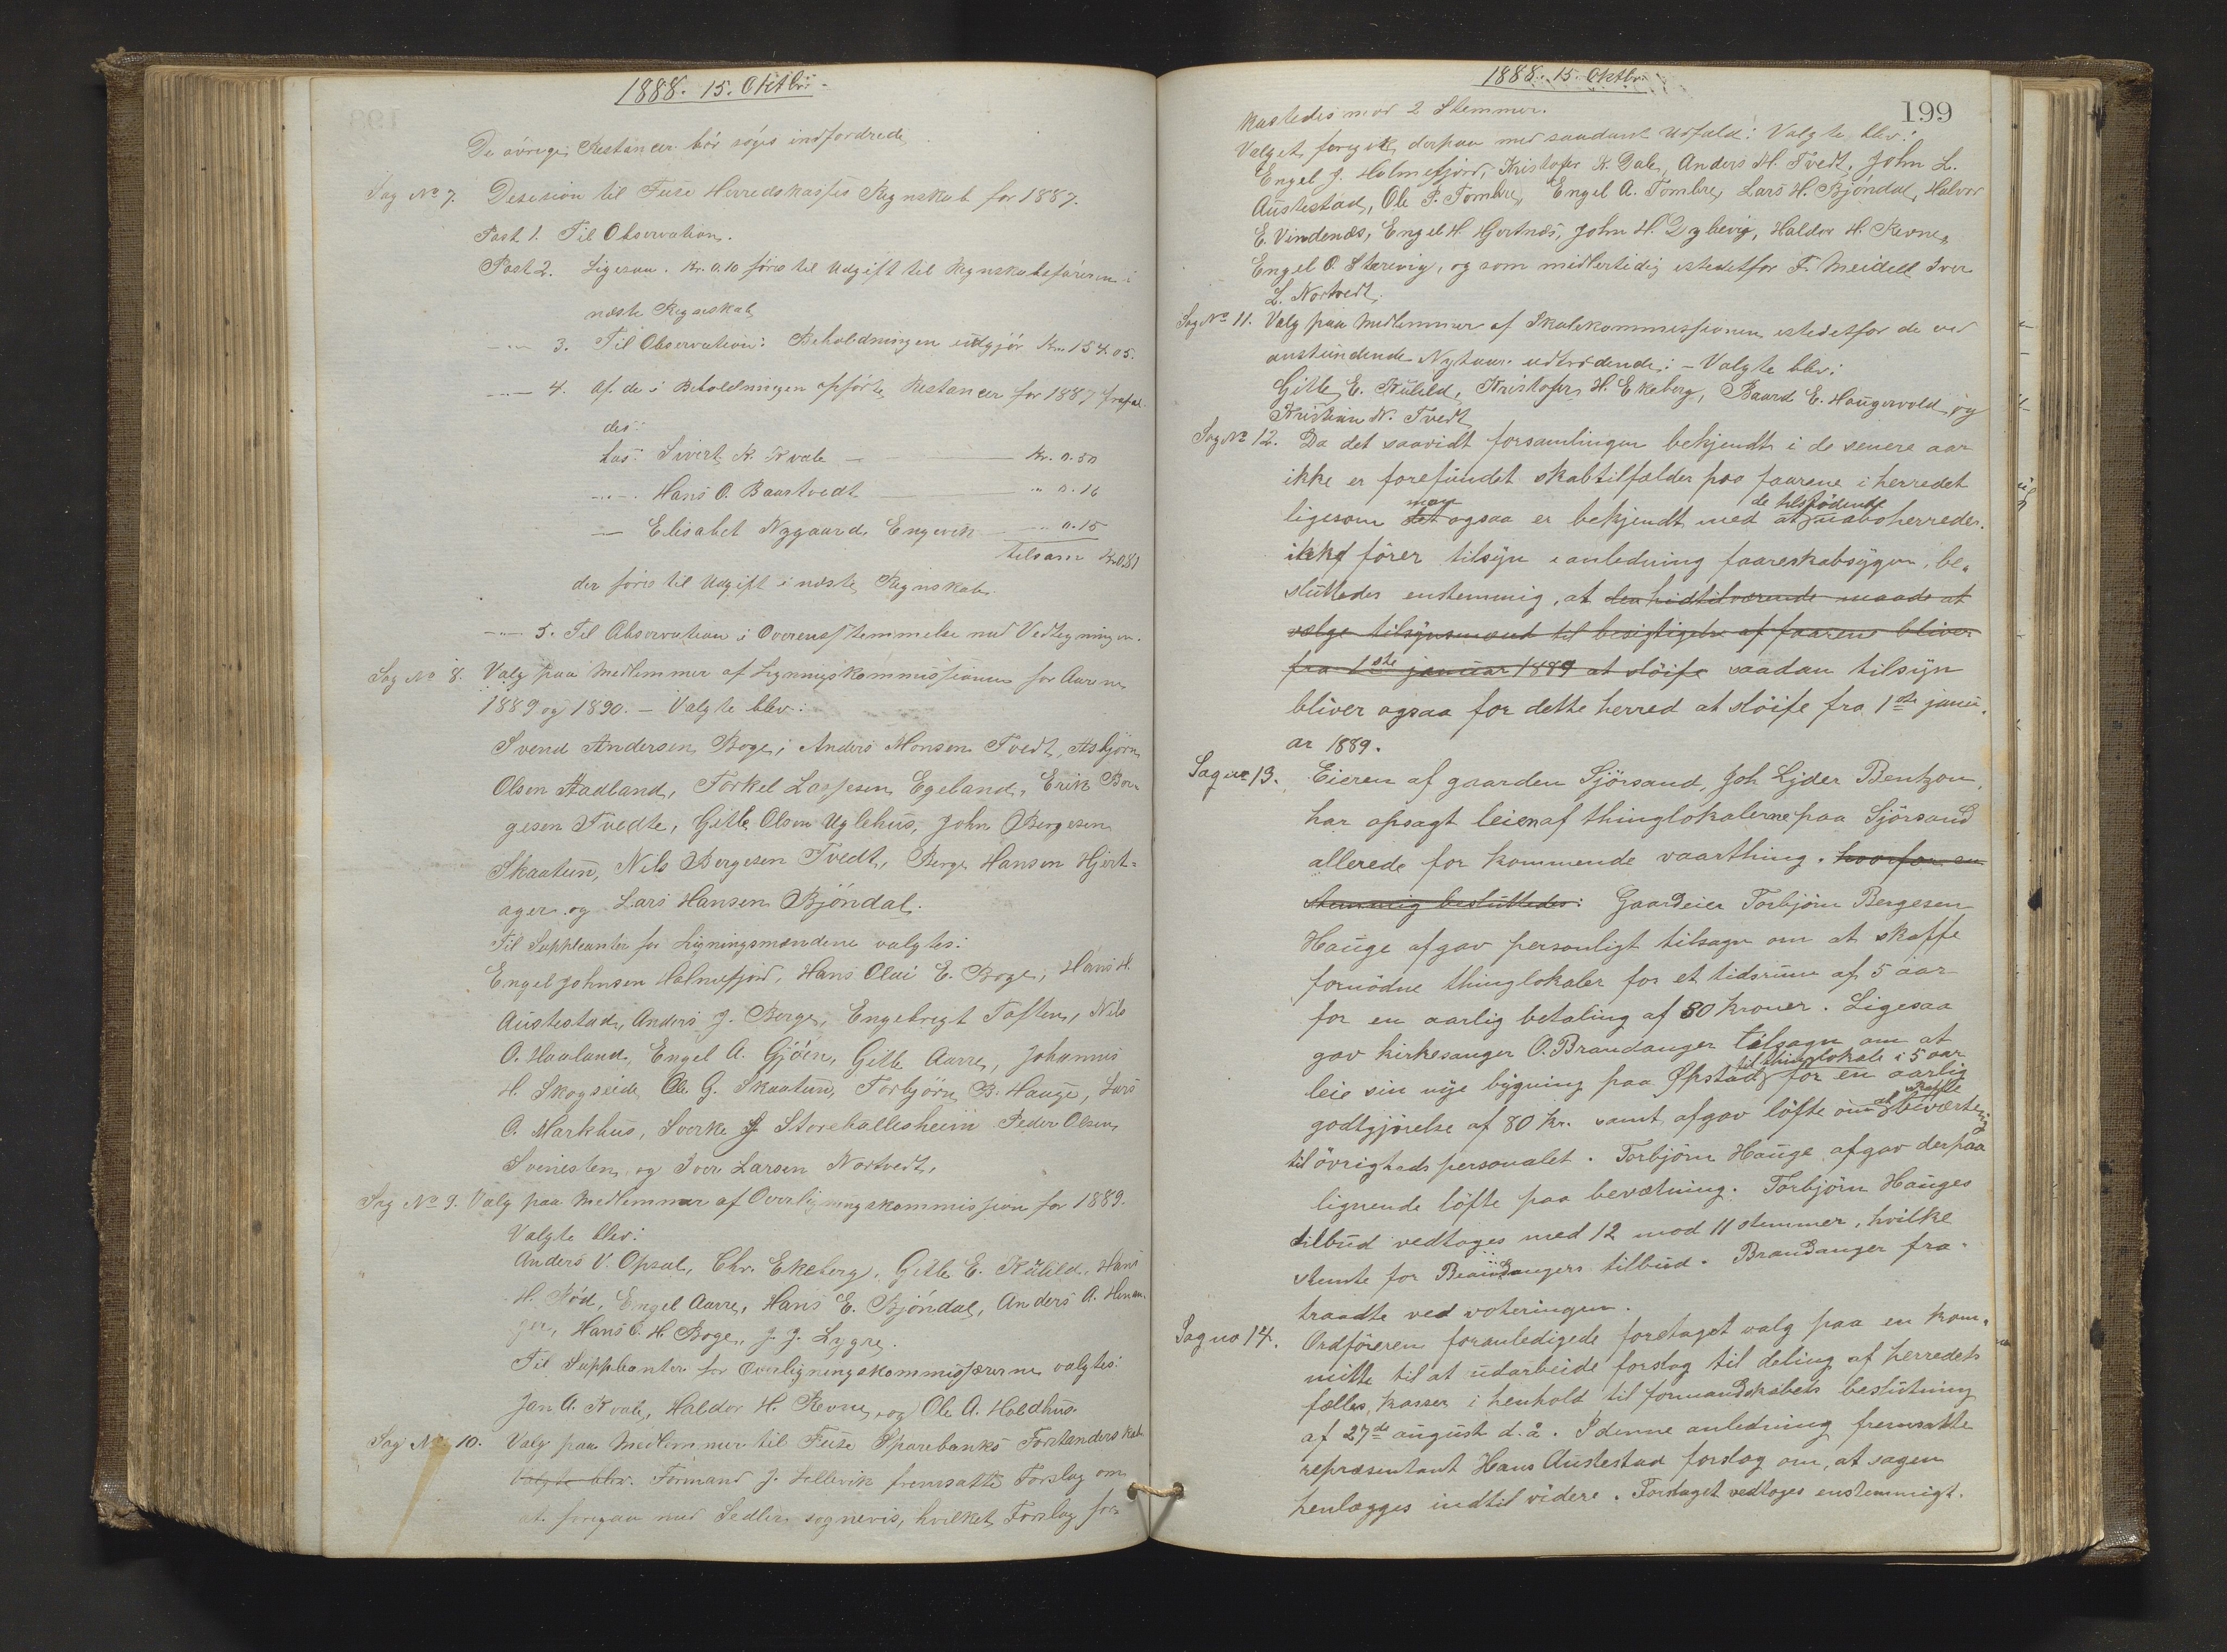 1888. 15. Oktbr.
De øvrige Restancer bør søges indfordrede.
Sag No 7. Desision til Fuse Herredskasses Regnskab for 1887.
Post 1. Til Observation.
Post 2. Ligesaa. Kr. 0.10 føres til Udgift til Regnskabsføreren i
næste Regnskab
-"- 3. Til Observation: Beholdningen udgjør Kr. 154.05.
-"- 4. Af de i Beholdningen opførte Restancer for 1887 frafal-
des:
hos: Sivert K. Kvale - Kr. 0.50
-"- Hans O. Baartvedt " 0.16
- Elisabet Nygaard, Engevik -"- 0.15
tilsam Kr 0.81
der føres til Udgift i næste Regnskab.
-"- 5. Til Observation i Overensstemmelse med Vedtegningen.
Sag No 8. Valg paa Medlemmer af Ligningskommissionen for Aarene
1889 og 1890. - Valgte blev:
Svend Andersen Boge, Anders Monsen Tvedt, Asbjørn
Olsen Aadland, Torkel Lassesen Egeland, Erik Bør-
gesen Tvedte, Gitle Olsen Uglehus, John Bergesen
Skaatun, Nils Bergesen Tvedt, Berge Hansen Hjert-
ager og Lars Hansen Bjøndal.
Til Suppleanter for Ligningsmændene valgtes:
Engel Johnsen Holmefjord, Hans Olai E. Boge, Hans H.
Austestad, Anders J. Berge, Engebregt Toften, Nils
O. Haaland, Engel A. Gjøen, Gitle Aarre, Johannes
H. Skogseide, Ole G. Skaatun, Torbjørn B. Hauge, Lars
O. Markhus, Sverke J. Storehallesheim Peder Olsen
Svinesten, og Iver Larsen Nortvedt.
Sag No 9. Valg paa Medlemmer af Overligningskommission for 1889.
Valgte blev:
Anders V. Opsal, Chr. Ekeberg, Gitle E. Kulild, Hans
H. Rød, Engel Aarre, Hans E. Bjøndal, Anders A. Henan-
ger, Hans O. H. Boge, J. J. Lygre.
Til Suppleanter for Overligningskommissærerne valgtes:
Jon A. Kvale, Haldor H. Revne, og Ole A. Holdhus.
Sag No 10. Valg paa Medlemmer til Fuse Sparebanks Forstanderskab
Valgte blev. Formand J. Hellevik fremsatte Forslag om
at foregaa med Sedler sognevis, hvilket Forslag for-
1888. 15. Oktbr.
199
kastedes mod 2 Stemmer.
Valget foregik derpaa med saadant Udfald: Valgte blev:
Engel J. Holmefjord, Kristofer K. Dale, Anders M. Tvedt, John L.
Austestad, Ole P. Tombre, Engel A. Tombre, Lars H. Bjøndal, Halvor
E. Vindenæs, Engel H. Gjertnæs, John H. Dybevig, Haldor H. Revne,
Engel O. Størevig, og som midlertidig istedetfor F. Meidell Iver
L. Nortvedt.
Sag No 11. Valg paa Medlemmer af Skolekommissionen istedetfor de ved
anstundende Nytaar udtrædende: - Valgte blev:
Gitle E. Kulild, Kristofer H. Ekeberg, Baard E. Haugervold og
Kristian N. Tvedt
Sag No 12. Da det saavidt forsamlingen bekjendt i de senere aar
ikke er forefundet skabtilfælder paa faarene i herredet
ligesom det man ogsaa er bekjendt med at de tilstødende naboherreder
ikke fører tilsyn i anledning faareskabsygen, be-
sluttedes enstemmig, at den hidtilværende maade at
vælge tilsynsmænd til besigtigelse af faarene bliver
fra 1ste januar 1889 at sløife saadan tilsyn
bliver ogsaa for dette herred at sløife fra 1ste janu-
ar 1889.
Sag no 13. Eieren af gaarden Sjørsand, Joh Lyder Bentzon,
har opsagt leien af thinglokalerne paa Sjørsand
allerede for kommende vaarthing. hvorfor en-
stemmig besluttedes: Gaardeier Torbjørn Bergesen
Hauge afgav personligt tilsagn om at skaffe
fornødne thinglokaler for et tidsrum af 5 aar
for en aarlig betaling af 80 kroner. Ligesaa
gav kirkesanger O. Brandanger tilsagn om at
leie sin nye bygning paa Øpstad til thinglokale i 5 aar for en aarlig
godtgjørelse af 80 Kr. samt afgav løfte om at skaffe beværtning
til øvrighedspersonalet. Torbjørn Hauge afgav derpaa
lignende løfte paa bevætning. Torbjørn Hauges
tilbud vedtoges med 12 mod 11 stemmer, hvilke
stemte for Brandangers tilbud. Brandanger fra-
traadte ved voteringen.
Sag no 14. Ordføreren foranledigede foretaget valg paa en kom-
mitte til at udarbeide forslag til deling af herredets
fælles kasser i henhold til formandskabets beslutning
af 27de august d. å. I denne anledning fremsatte
repræsentant Hans Austestad forslag om, at sagen
henlægges indtil videre. Forslaget vedtoges enstemmigt.